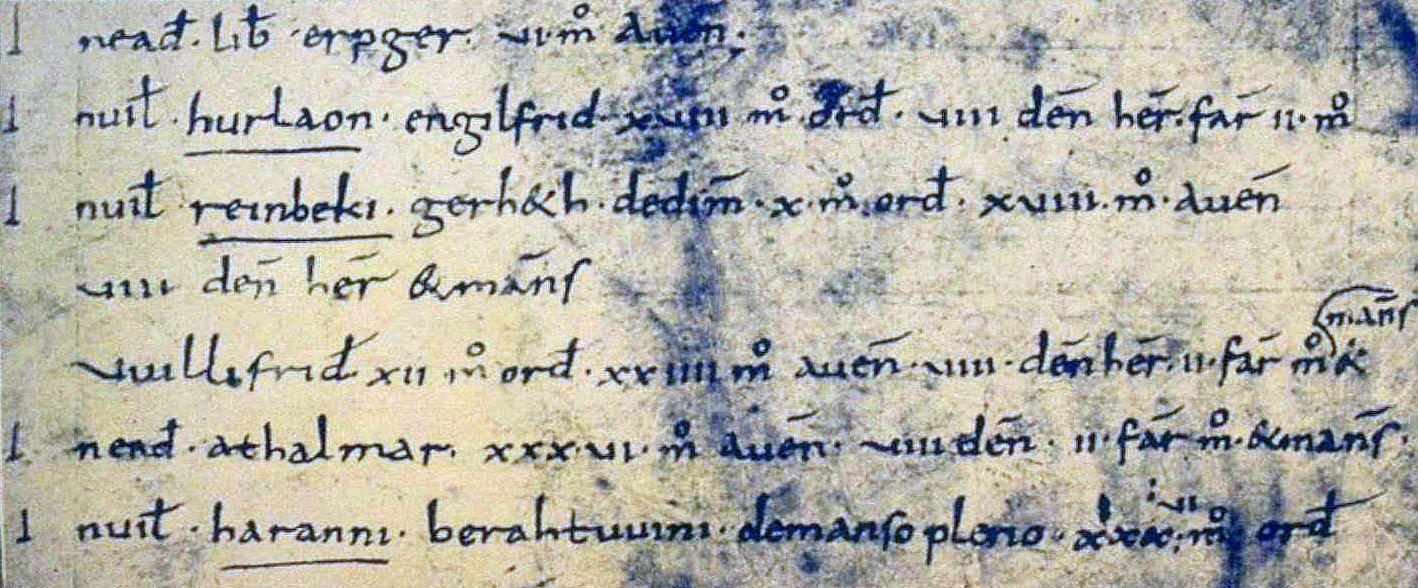 I nead̄. lib̄. erpger. vı m̊ auen̄.
I nuil̄. hurlaon. engilfrid xviiii m̊ ord̄. viiii den̄ her̄. far̄ ii. m̊
I nuil̄ reinbeki. gerh&h. dedim̄. x. m̊. ord̄. xviiii. m̊. auen̄
viiii den̄ her̄ &man̄s
vuillifrid̄ xii m̊ ord̄. xxiiii m̊ auen̄. viiii. den̄ her̄. ii. far̄ m̊ & man̄s
I nead̄. athalmar. xxx.vi. m̊ auen̄. viiii den̄. ii. far̄ m̊. &man̄s.
I nuil̄. haranni. berahtuuini. demanso pleno. m̊ ord̄